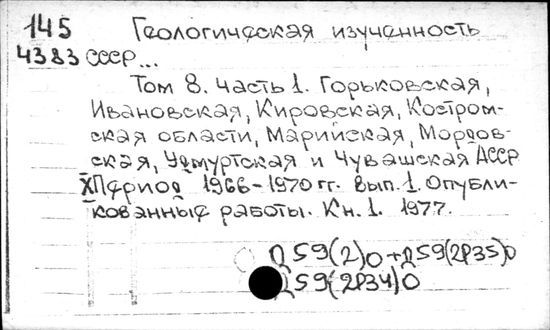 145 Геологическая изученность
4383 СССР...
Том 8. Часть 1. Горьковская,
Ивановская, Кировская, Костром-
ская области, Марийская, Мордов-
ская, Удмуртская и Чувашская АССР
Период 1966-1970 гг. Вып. 1. Опубли-
кованные работы. Кн. 1. 1977.
Д59(2)0+Д59(2Р35)0
Д59(2Р34)0